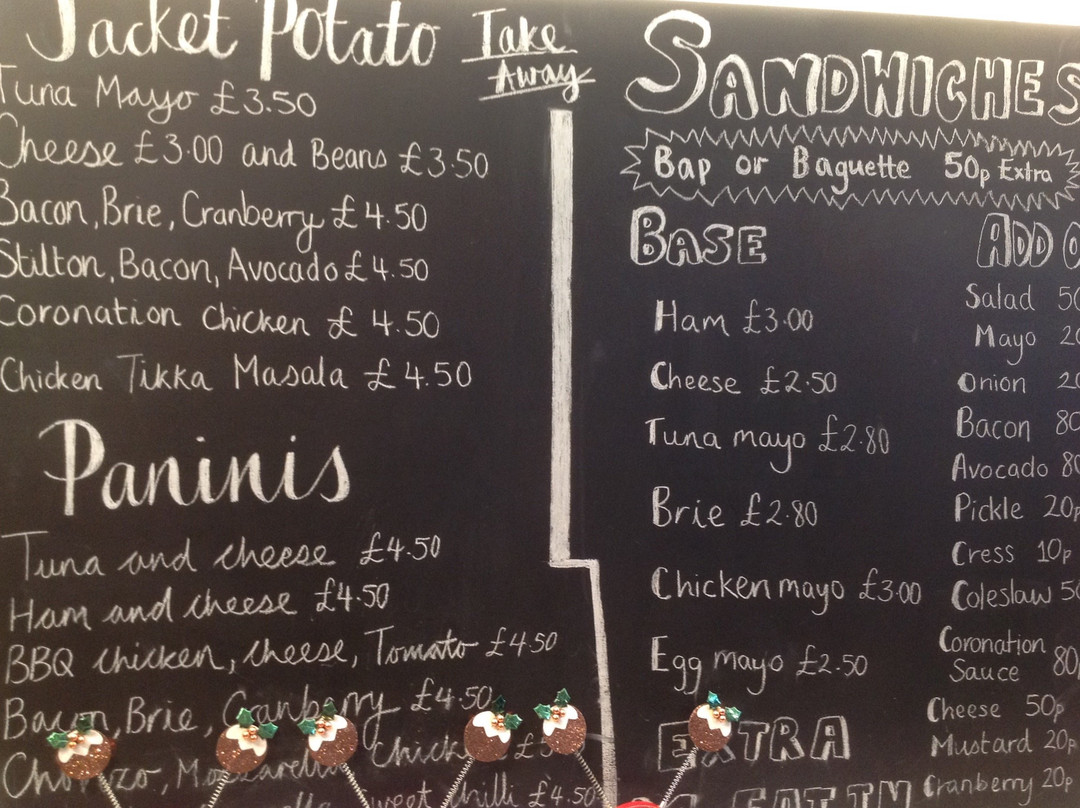 Jacket Potato
Take
Away
Tuna Mayo £3.50
Cheese £3.00 and Beans £3.50
Bacon, Brie, Cranberry £4.50
Stilton, Bacon, Avocado £4.50
Coronation Chicken £4.50
Chicken Tikka Masala £4.50
Paninis
Tuna and cheese £4.50
Ham and cheese £4.50
BBQ chicken, cheese, Tomato £4.50
Bacon, Brie, Cranberry £4.50
Chorizo, Mozzarella
Sweet chilli £4.50
SANDWICHES
Bap or Baguette 50p Extra
BASE
Ham £3.00
Cheese £2.50
Tuna mayo £2.80
Brie £2.80
Chicken mayo £3.00
Egg mayo £2.50
EXTRA
EAT IN
ADD
Salad 50
Mayo 20
Onion 20
Bacon 80
Avocado 80
Pickle 20p
Cress 10p
Coleslaw 50
Coronation
Sauce 80
Cheese 50p
Mustard 20p
Cranberry 20p